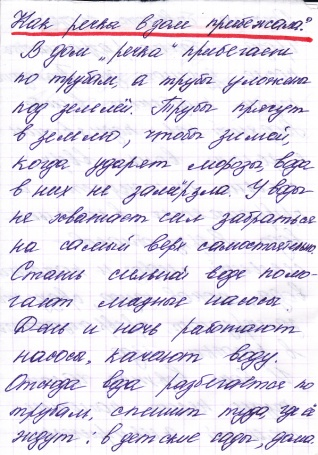 Как речка в дом прибежала?
В дом „речка" прибегает
по трубам, а трубы уложены
под землёй. Трубы прячут
в землю, чтобы зимой,
когда ударят морозы, вода
в них не замёрзла. У воды
не хватает сил забраться
на самый верх самостоятельно.
Стать сильной воде помо-
гают мощные насосы.
День и ночь работают
насосы, качают воду.
Отсюда вода разбегается по
трубам, спешит туда, где её
ждут: в детские сады, дома.